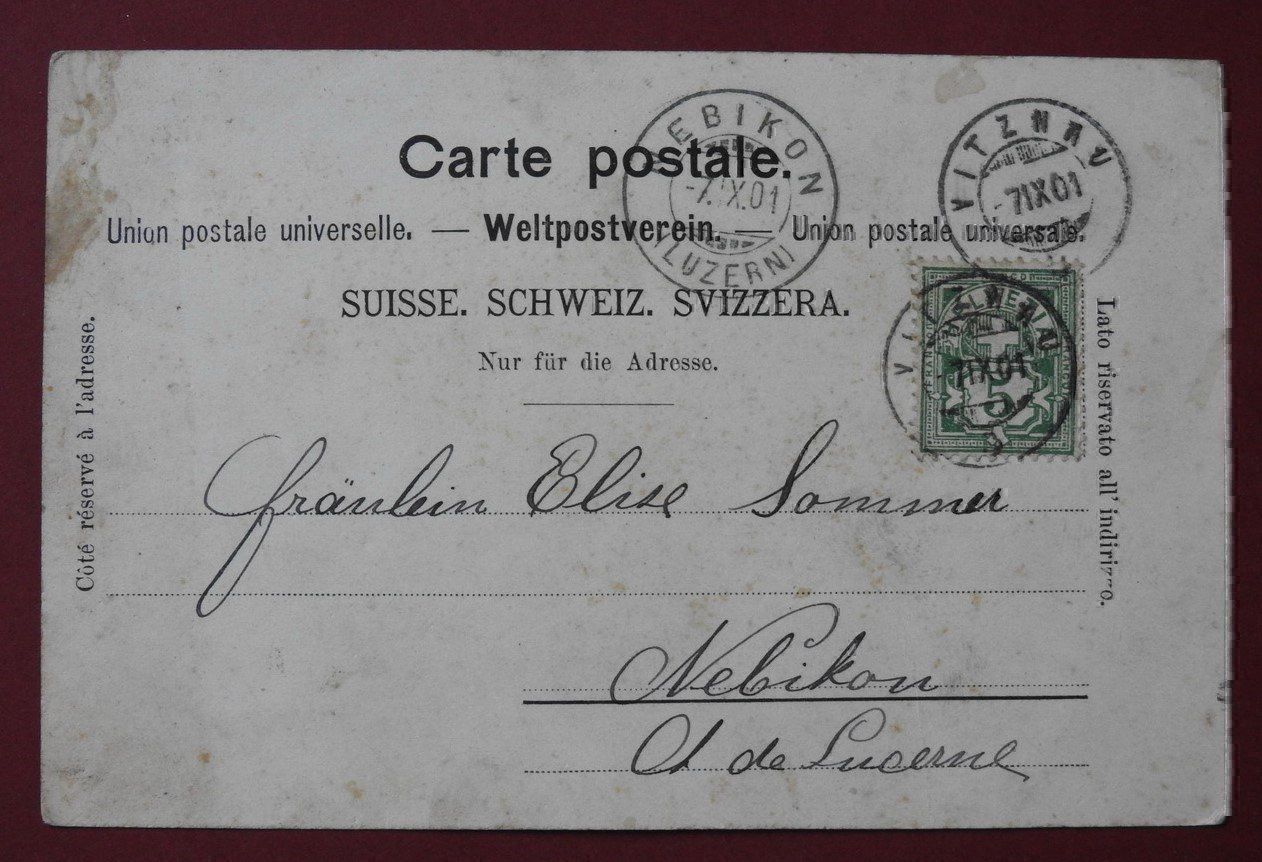 Carte postale.
NEBIKON
-7.IX.01
(LUZERN)
VITZNAU
-7.IX.01
Union postale universelle. — Weltpostverein. — Union postale universale.
SUISSE. SCHWEIZ. SVIZZERA.
Nur für die Adresse.
HELVETIA
FRANCO
5
VITZNAU
-7.IX.01
Côté réservé à l'adresse.
Lato riservato all' indirizzo.
Fräulein Elise Sommer
Nebikon
Ct de Lucerne